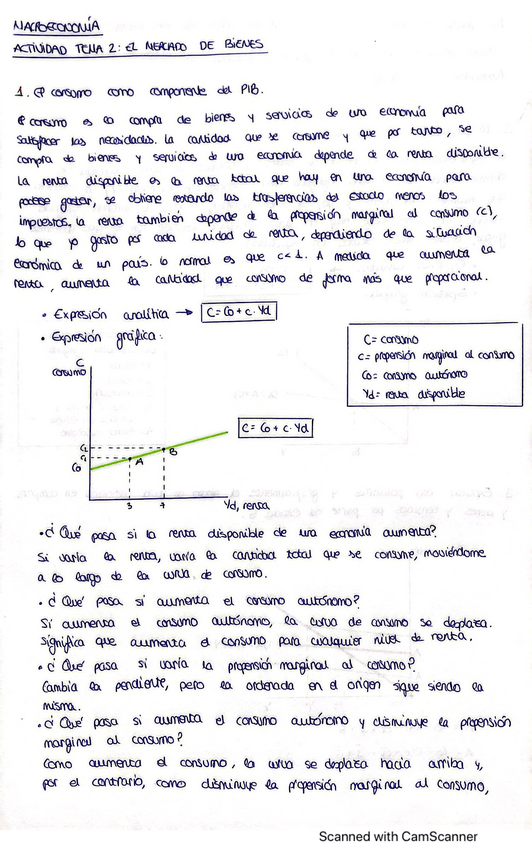 MACROECONOMÍA
ACTIVIDAD TEMA 2: EL MERCADO DE BIENES
1. El consumo como componente del PIB.
El consumo es la compra de bienes y servicios de una economía para
satisfacer las necesidades. La cantidad que se consume y que por tanto, se
compra de bienes y servicios de una economía depende de la renta disponible.
La renta disponible es la renta total que hay en una economía para
poderse gastar, se obtiene restando las trasferencias del estado menos los
impuestos. La renta también depende de la propersión marginal al consumo (c),
lo que yo gasto por cada unidad de renta, dependiendo de la situación
económica de un país. Lo normal es que c<1. A medida que aumenta la
renta, aumenta la cantidad que consumo de forma más que proporcional.
• Expresión analítica → C = C0 + c · Yd
• Expresión gráfica:
C = consumo
c = propersión marginal al consumo
C0 = consumo autónomo
Yd = renta disponible
C
consumo
C = C0 + c · Yd
C2
C1
C0
A
B
3
7
Yd, renta
• ¿Qué pasa si la renta disponible de una economía aumenta?
Si varía la renta, varía la cantidad total que se consume, moviéndome
a lo largo de la curva de consumo.
• ¿Qué pasa si aumenta el consumo autónomo?
Si aumenta el consumo autónomo, la curva de consumo se desplaza.
Significa que aumenta el consumo para cualquier nivel de renta.
• ¿Qué pasa si varía la propersión marginal al consumo?
Cambia la pendiente, pero la ordenada en el origen sigue siendo la
misma.
• ¿Qué pasa si aumenta el consumo autónomo y disminuye la propersión
marginal al consumo?
Como aumenta el consumo, la curva se desplaza hacia arriba y,
por el contrario, como disminuye la propersión marginal al consumo,
Scanned with CamScanner